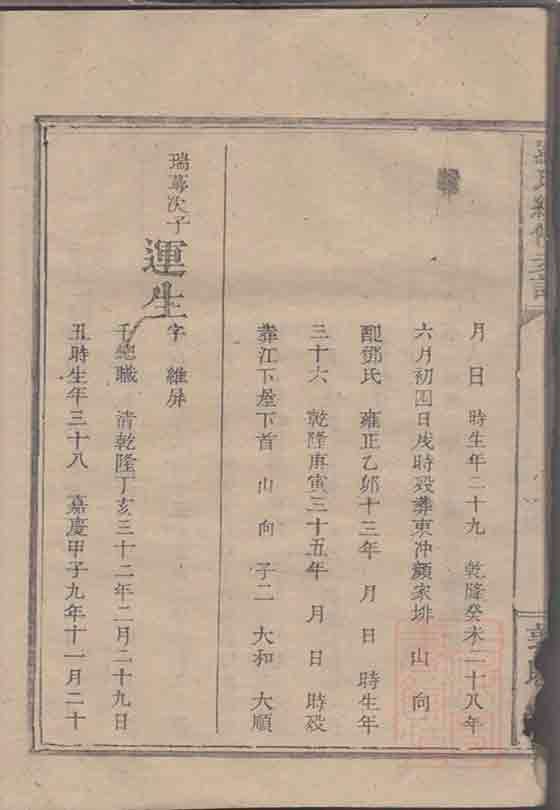 月　日　時生年二十九　乾隆癸未二十八年
六月初四日戌時歿葬東冲顏家排　山　向
配鄧氏　雍正乙卯十三年　月　日　時生年
三十六　乾隆庚寅三十五年　月　日　時歿
葬江下屋下首　山　向　子二　大和　大順
瑞　次子　運生　字　維屏
千總職　清乾隆丁亥三十二年二月二十九日
丑時生年三十八　嘉慶甲子九年十一月二十